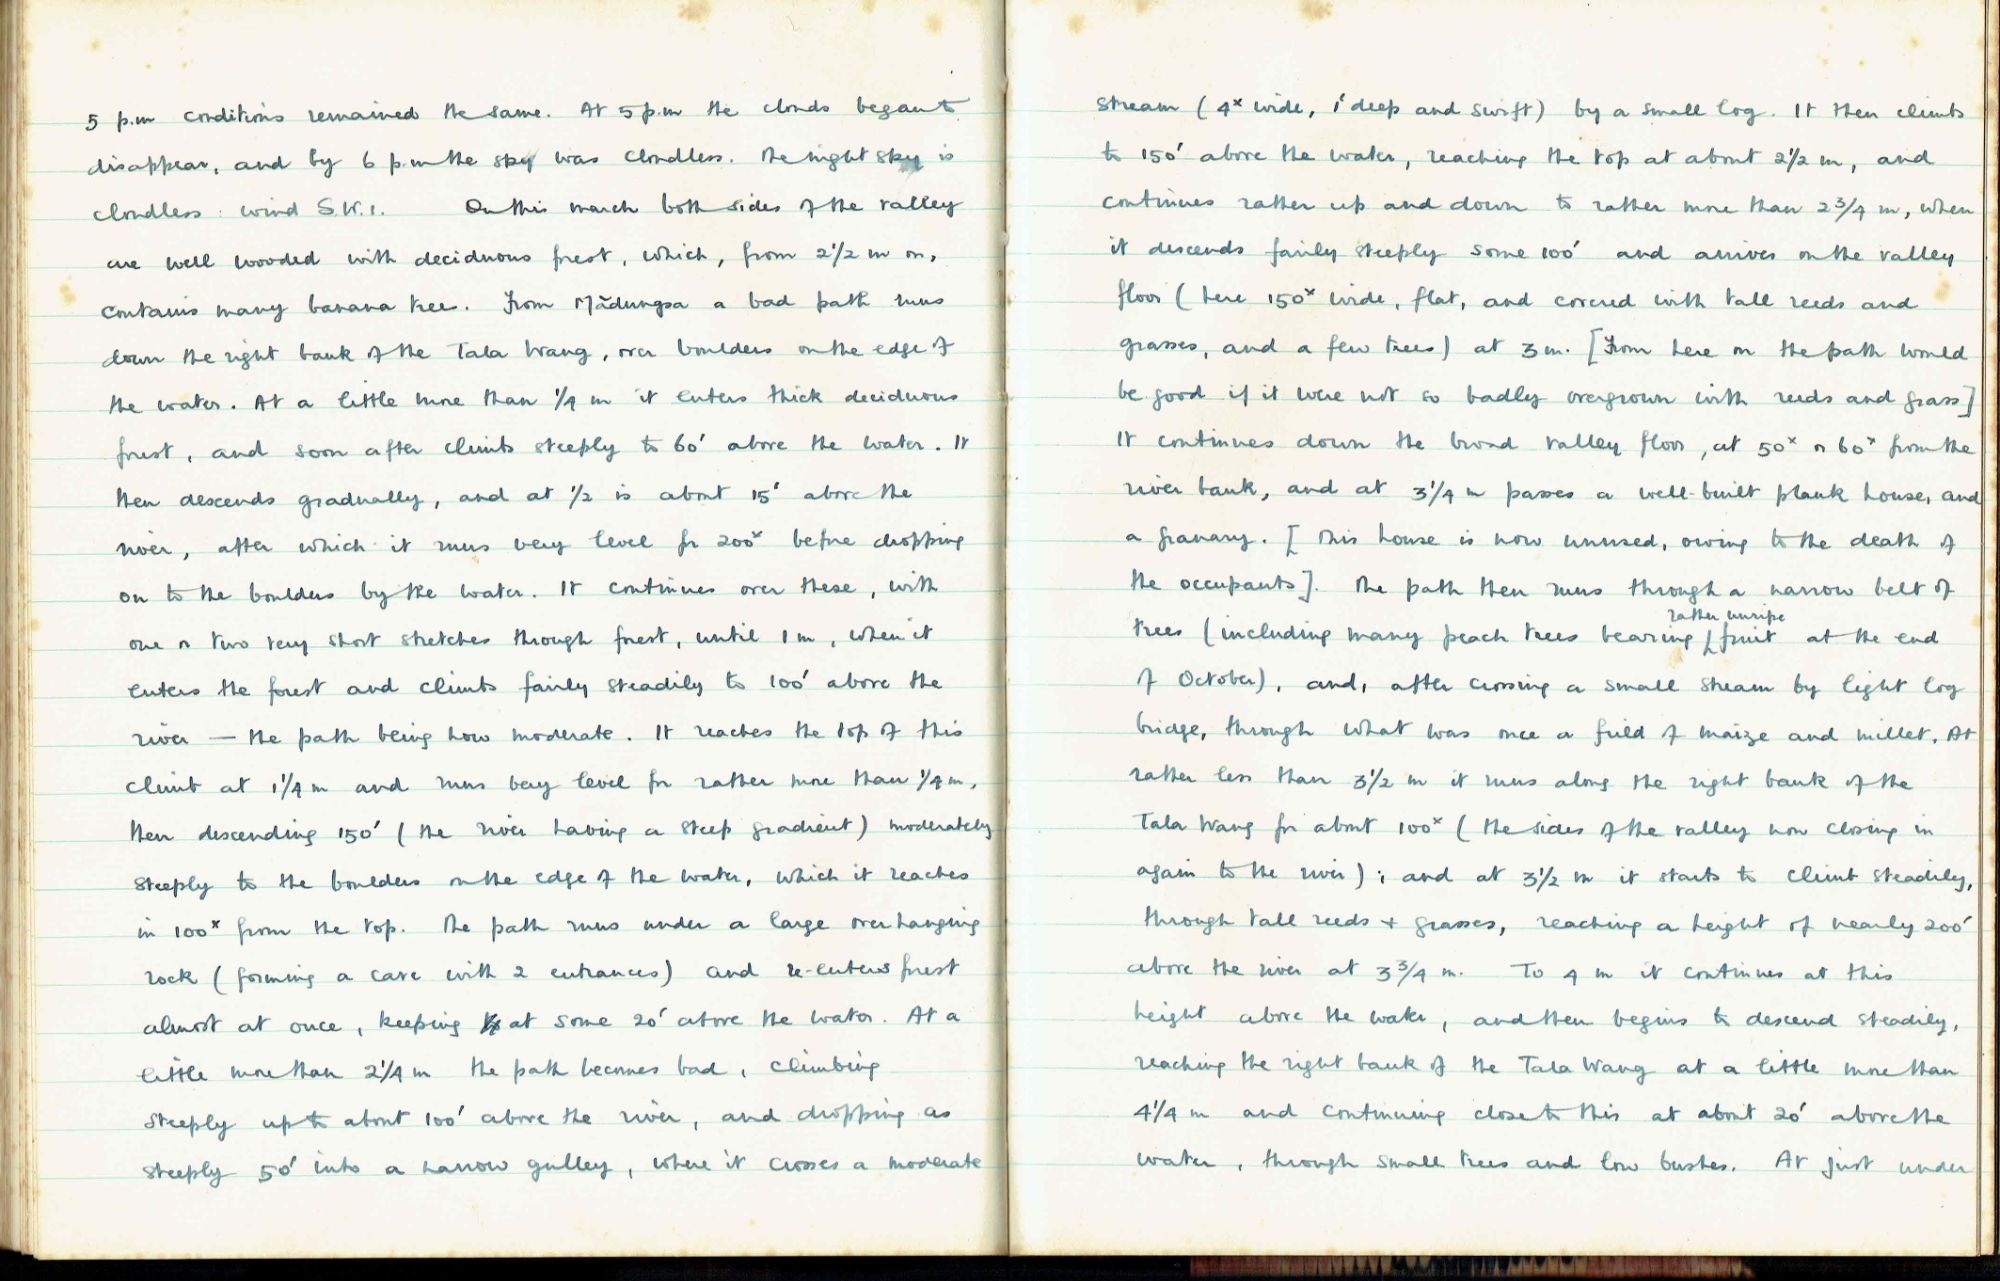 5 p.m conditions remained the same. At 5 p.m the clouds began to
disappear, and by 6 p.m the sky was cloudless. The night sky is
cloudless: wind S.W.1. On this march both sides of the valley
are well wooded with deciduous forest, which, from 2½ m on,
contains many banana trees. From Mãdungsa a bad path runs
down the right bank of the Tala Wang, over boulders on the edge of
the water. At a little more than ¼ m it enters thick deciduous
forest, and soon after climbs steeply to 60' above the water. It
then descends gradually, and at ½ is about 15' above the
river, after which it runs very level for 200ˣ before dropping
on to the boulders by the water. It continues over these, with
one or two very short stretches through forest, until 1 m, when it
enters the forest and climbs fairly steadily to 100' above the
river — the path being now moderate. It reaches the top of this
climb at 1¼ m and runs very level for rather more than ¼ m,
then descending 150' (the river having a steep gradient) moderately
steeply to the boulders on the edge of the water, which it reaches
in 100ˣ from the top. The path runs under a large overhanging
rock (forming a cave with 2 entrances) and re-enters forest
almost at once, keeping at some 20' above the water. At a
little more than 2¼ m the path becomes bad, climbing
steeply up to about 100' above the river, and dropping as
steeply 50' into a narrow gulley, where it crosses a moderate
stream (4ˣ wide, 1' deep and swift) by a small log. It then climbs
to 150' above the water, reaching the top at about 2½ m, and
continues rather up and down to rather more than 2¾ m, when
it descends fairly steeply some 100' and arrives on the valley
floor (here 150ˣ wide, flat, and covered with tall reeds and
grasses, and a few trees) at 3 m. [From here on the path would
be good if it were not so badly overgrown with reeds and grass]
It continues down the broad valley floor, at 50ˣ or 60ˣ from the
river bank, and at 3¼ m passes a well-built plank house, and
a granary. [This house is now unused, owing to the death of
the occupants]. The path then runs through a narrow belt of
rather unripe
trees (including many peach trees bearing fruit at the end
of October), and, after crossing a small stream by light log
bridge, through what was once a field of maize and millet. At
rather less than 3½ m it runs along the right bank of the
Tala Wang for about 100ˣ (the sides of the valley now closing in
again to the river); and at 3½ m it starts to climb steadily,
through tall reeds + grasses, reaching a height of nearly 200'
above the river at 3¾ m. To 4 m it continues at this
height above the water, and then begins to descend steadily,
reaching the right bank of the Tala Wang at a little more than
4¼ m and continuing close to this at about 20' above the
water, through small trees and low bushes. At just under